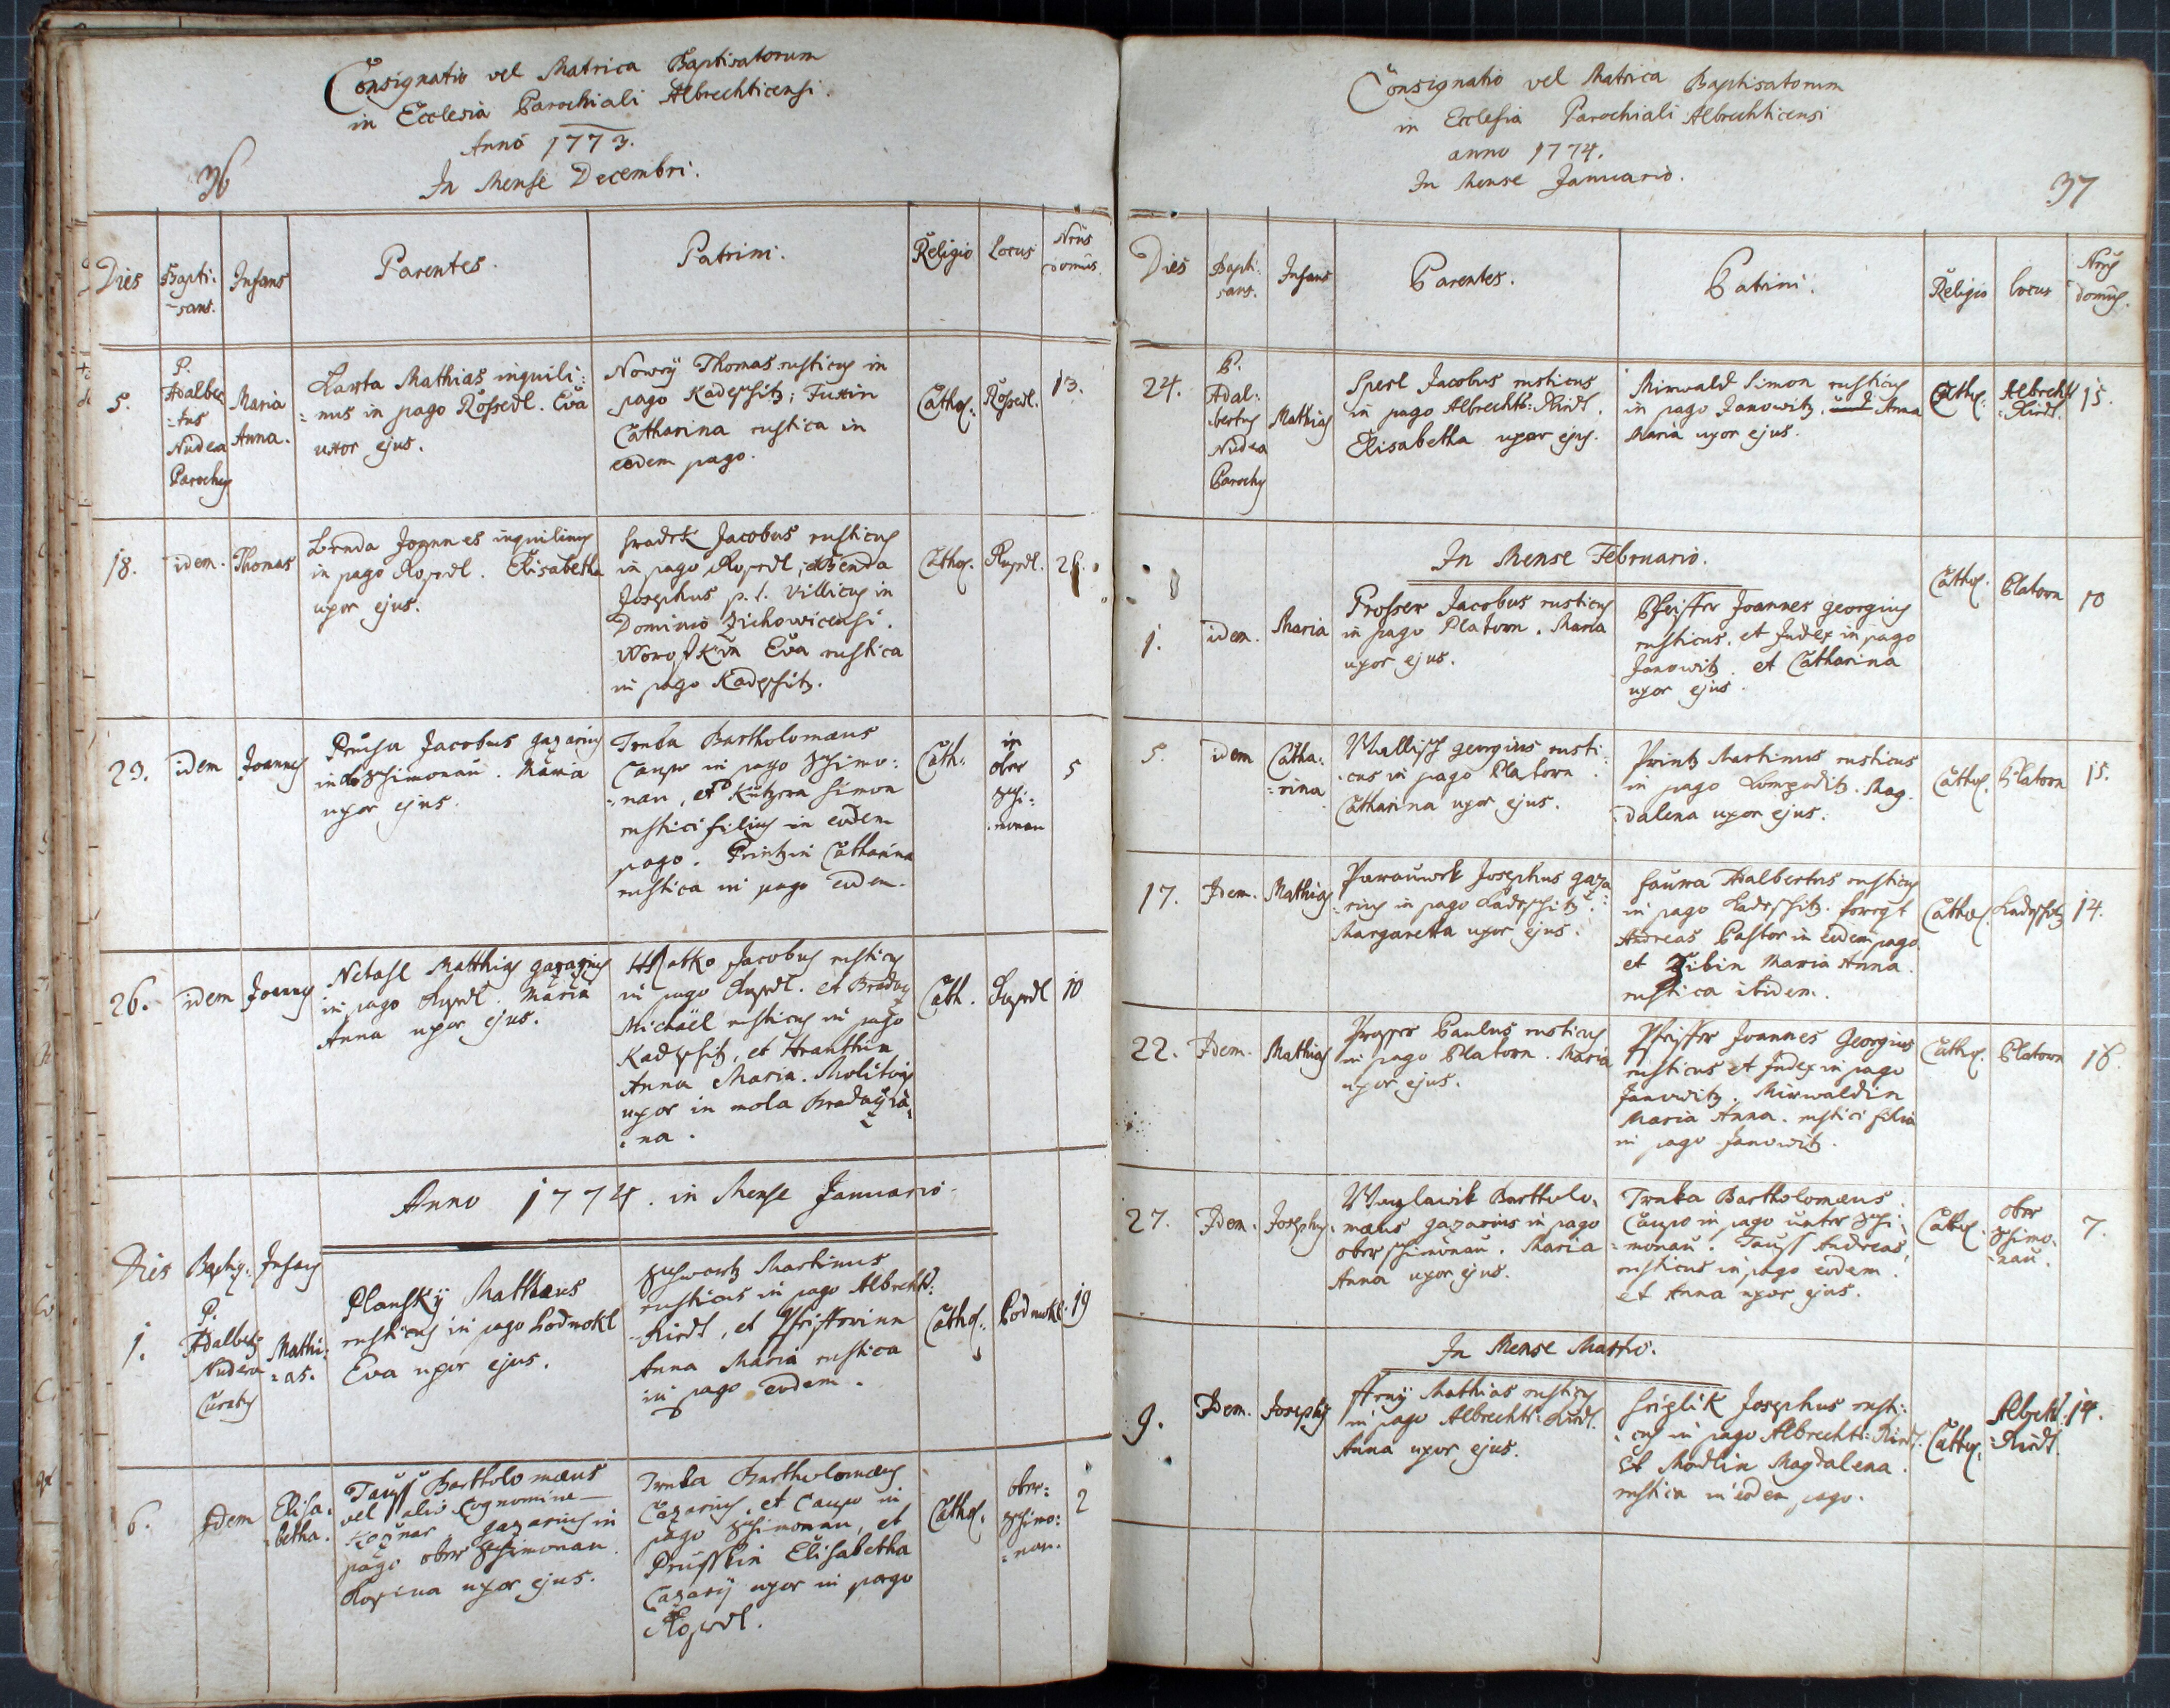 Consignatio vel Matrica Baptisatorum
in Ecclesia Parochiali Albrechticensi.
Anno 1773.
In Mense Decembri.
36
Dies
Bapti:
sans.
Infans
Parentes.
Patrini.
Religio
Locus
Nrus
domus.
5.
P.
Adalber
-tus
Nudera
Parochus
Maria
Anna.
Mathias inquili:
nus in pago Rossedl. Eva
uxor ejus.
Nowy Thomas rusticus in
pago Kadeschitz; Fuxin
Catharina rustica in
eodem pago.
Cathol:
Rossedl.
13.
18.
idem.
Thomas
Benda Joannes inquilinus
in pago Rosedl. Elisabetha
uxor ejus.
Hradek Jacobus rusticus
in pago Rosedl; Benda
Josephus p. t. Villicus in
Dominio Zichowicensi.
Woroschkin Eva rustica
in pago Kadeschitz.
Cathol.
Rosedl.
23.
idem
Joannes
Pruscha Jacobus gazarius
in Zschimonau. Maria
uxor ejus.
Trnka Bartholomæus
Caupo in pago Zschimo:
nau, et Simon
rustici filius in eodem
pago. Printzin Catharina
rustica in pago eodem.
Cath:
in
ober
Zschi:
monau
5
26.
idem
Joannes
Netahl Matthias gazarius
in pago Rosedl. Maria
Anna uxor ejus.
Hlatko Jacobus rusticus
in pago Rosedl. et
Michaël rusticus in pago
Kadeschitz, et
Anna Maria. Molitoris
uxor in mola
na.
Cath.
Rosedl
10
Anno 1774. in Mense Januario
Dies
Bapt:
Infans
1.
P.
Adalbertus
Nudera
Curatus
Mathi:
as.
Plansky Mathæus
rusticus in pago Podmokl
Eva uxor ejus.
Zschwartz Martinus
rusticus in pago Albrechts:
Riedt, et Pfeifferinn
Anna Maria rustica
in pago eodem.
Cathol:
Podmokl.
19
6.
Idem
Elisa:
betha.
Tausch Bartholomæus
vel alio Cognomine
gazarius in
pago ober Zschimonau.
Rosina uxor ejus.
Trnka Bartholomæus
Cazarius, et Caupo in
pago Zschimonau, et
Pruschkin Elisabetha
Cazarij uxor in pago
Rosedl.
Cathol.
ober:
Zschimo:
nau.
2
Consignatio vel Matrica Baptisatorum
in Ecclesia Parochiali Albrechticensi
anno 1774.
In Mense Januario.
37
Dies
Bapti:
sans.
Infans
Parentes.
Patrini.
Religio
Locus
Nrus
domus.
24.
P.
Adal:
bertus
Nudera
Parochus
Mathias
Sperl Jacobus rusticus
in pago Albrechts:Riedt.
Elisabetha uxor ejus.
Mirwald Simon rusticus
in pago Janowitz. Anna
Maria uxor ejus.
Cathol:
Albrechts
Riedt.
15.
In Mense Februario.
1.
idem.
Maria
Prosser Jacobus rusticus
in pago Platorn. Maria
uxor ejus.
Pfeiffer Joannes georgius
rusticus. et Judex in pago
Janowitz. et Catharina
uxor ejus.
Cathol.
Platorn
10
5.
idem
Catha:
rina
Wallisch georgius rusti:
cus in pago Platorn.
Catharina uxor ejus.
Printz Martinus rusticus
in pago Mag:
dalena uxor ejus.
Cathol.
Platorn
15.
17.
Idem.
Mathias
Josephus gaza
rius in pago Kadeschitz.
Margaretha uxor ejus.
Adalbertus rusticus
in pago Kadeschitz.
Andreas Pastor in eodem pago
et Maria Anna.
rustica ibidem.
Cathol.
Kadeschitz
14.
22.
Idem.
Mathias
Prosser Paulus rusticus
in pago Platorn. Maria
uxor ejus.
Pfeiffer Joannes Georgius
rusticus et Judex in pago
Janowitz. Mirwaldin
Maria Anna. rustici filia
in pago Janowitz.
Cathol.
Platorn
18.
27.
Idem.
Josephus.
Waglawik Bartholo:
mæus gazarius in pago
ober Zschimonau. Maria
Anna uxor ejus.
Trnka Bartholomæus
Caupo in pago unter Zschi:
monau. Tausch Andreas,
rusticus in pago eodem.
et Anna uxor ejus.
Cathol.
ober
Zschimo:
nau.
7.
In Mense Martio.
9.
Idem.
Josephus
Mathias rusticus
in pago Albrechts:Riedt.
Anna uxor ejus.
Josephus rusti:
cus in pago Albrechts:Riedt.
et Magdalena.
rustica in eodem pago.
Cathol.
Albrechts
Riedt.
14.